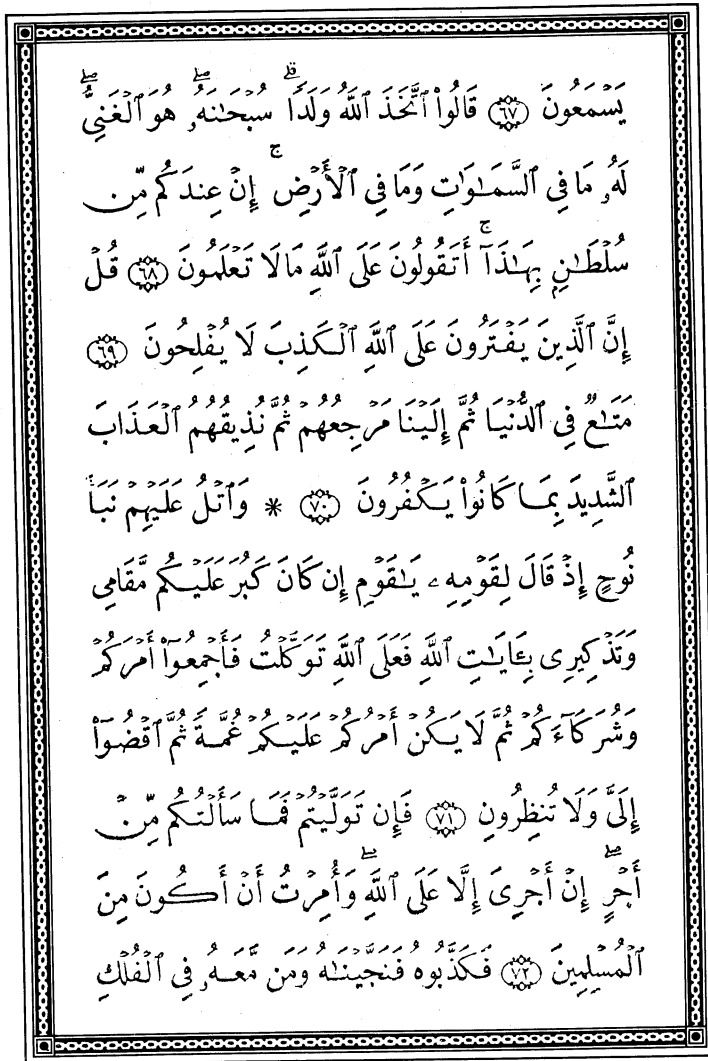 يَسْمَعُونَ ﴿٦٧﴾ قَالُوا۟ ٱتَّخَذَ ٱللَّهُ وَلَدًا ۗ سُبْحَـٰنَهُۥ ۖ هُوَ ٱلْغَنِىُّ ۖ
لَهُۥ مَا فِى ٱلسَّمَـٰوَٰتِ وَمَا فِى ٱلْأَرْضِ ۚ إِنْ عِندَكُم مِّن
سُلْطَـٰنٍۭ بِهَـٰذَآ ۚ أَتَقُولُونَ عَلَى ٱللَّهِ مَا لَا تَعْلَمُونَ ﴿٦٨﴾ قُلْ
إِنَّ ٱلَّذِينَ يَفْتَرُونَ عَلَى ٱللَّهِ ٱلْكَذِبَ لَا يُفْلِحُونَ ﴿٦٩﴾
مَتَـٰعٌ فِى ٱلدُّنْيَا ثُمَّ إِلَيْنَا مَرْجِعُهُمْ ثُمَّ نُذِيقُهُمُ ٱلْعَذَابَ
ٱلشَّدِيدَ بِمَا كَانُوا۟ يَكْفُرُونَ ﴿٧٠﴾ * وَٱتْلُ عَلَيْهِمْ نَبَأَ
نُوحٍ إِذْ قَالَ لِقَوْمِهِۦ يَـٰقَوْمِ إِن كَانَ كَبُرَ عَلَيْكُم مَّقَامِى
وَتَذْكِيرِى بِـَٔايَـٰتِ ٱللَّهِ فَعَلَى ٱللَّهِ تَوَكَّلْتُ فَأَجْمِعُوٓا۟ أَمْرَكُمْ
وَشُرَكَآءَكُمْ ثُمَّ لَا يَكُنْ أَمْرُكُمْ عَلَيْكُمْ غُمَّةً ثُمَّ ٱقْضُوٓا۟
إِلَىَّ وَلَا تُنظِرُونِ ﴿٧١﴾ فَإِن تَوَلَّيْتُمْ فَمَا سَأَلْتُكُم مِّنْ
أَجْرٍ ۖ إِنْ أَجْرِىَ إِلَّا عَلَى ٱللَّهِ ۖ وَأُمِرْتُ أَنْ أَكُونَ مِنَ
ٱلْمُسْلِمِينَ ﴿٧٢﴾ فَكَذَّبُوهُ فَنَجَّيْنَـٰهُ وَمَن مَّعَهُۥ فِى ٱلْفُلْكِ